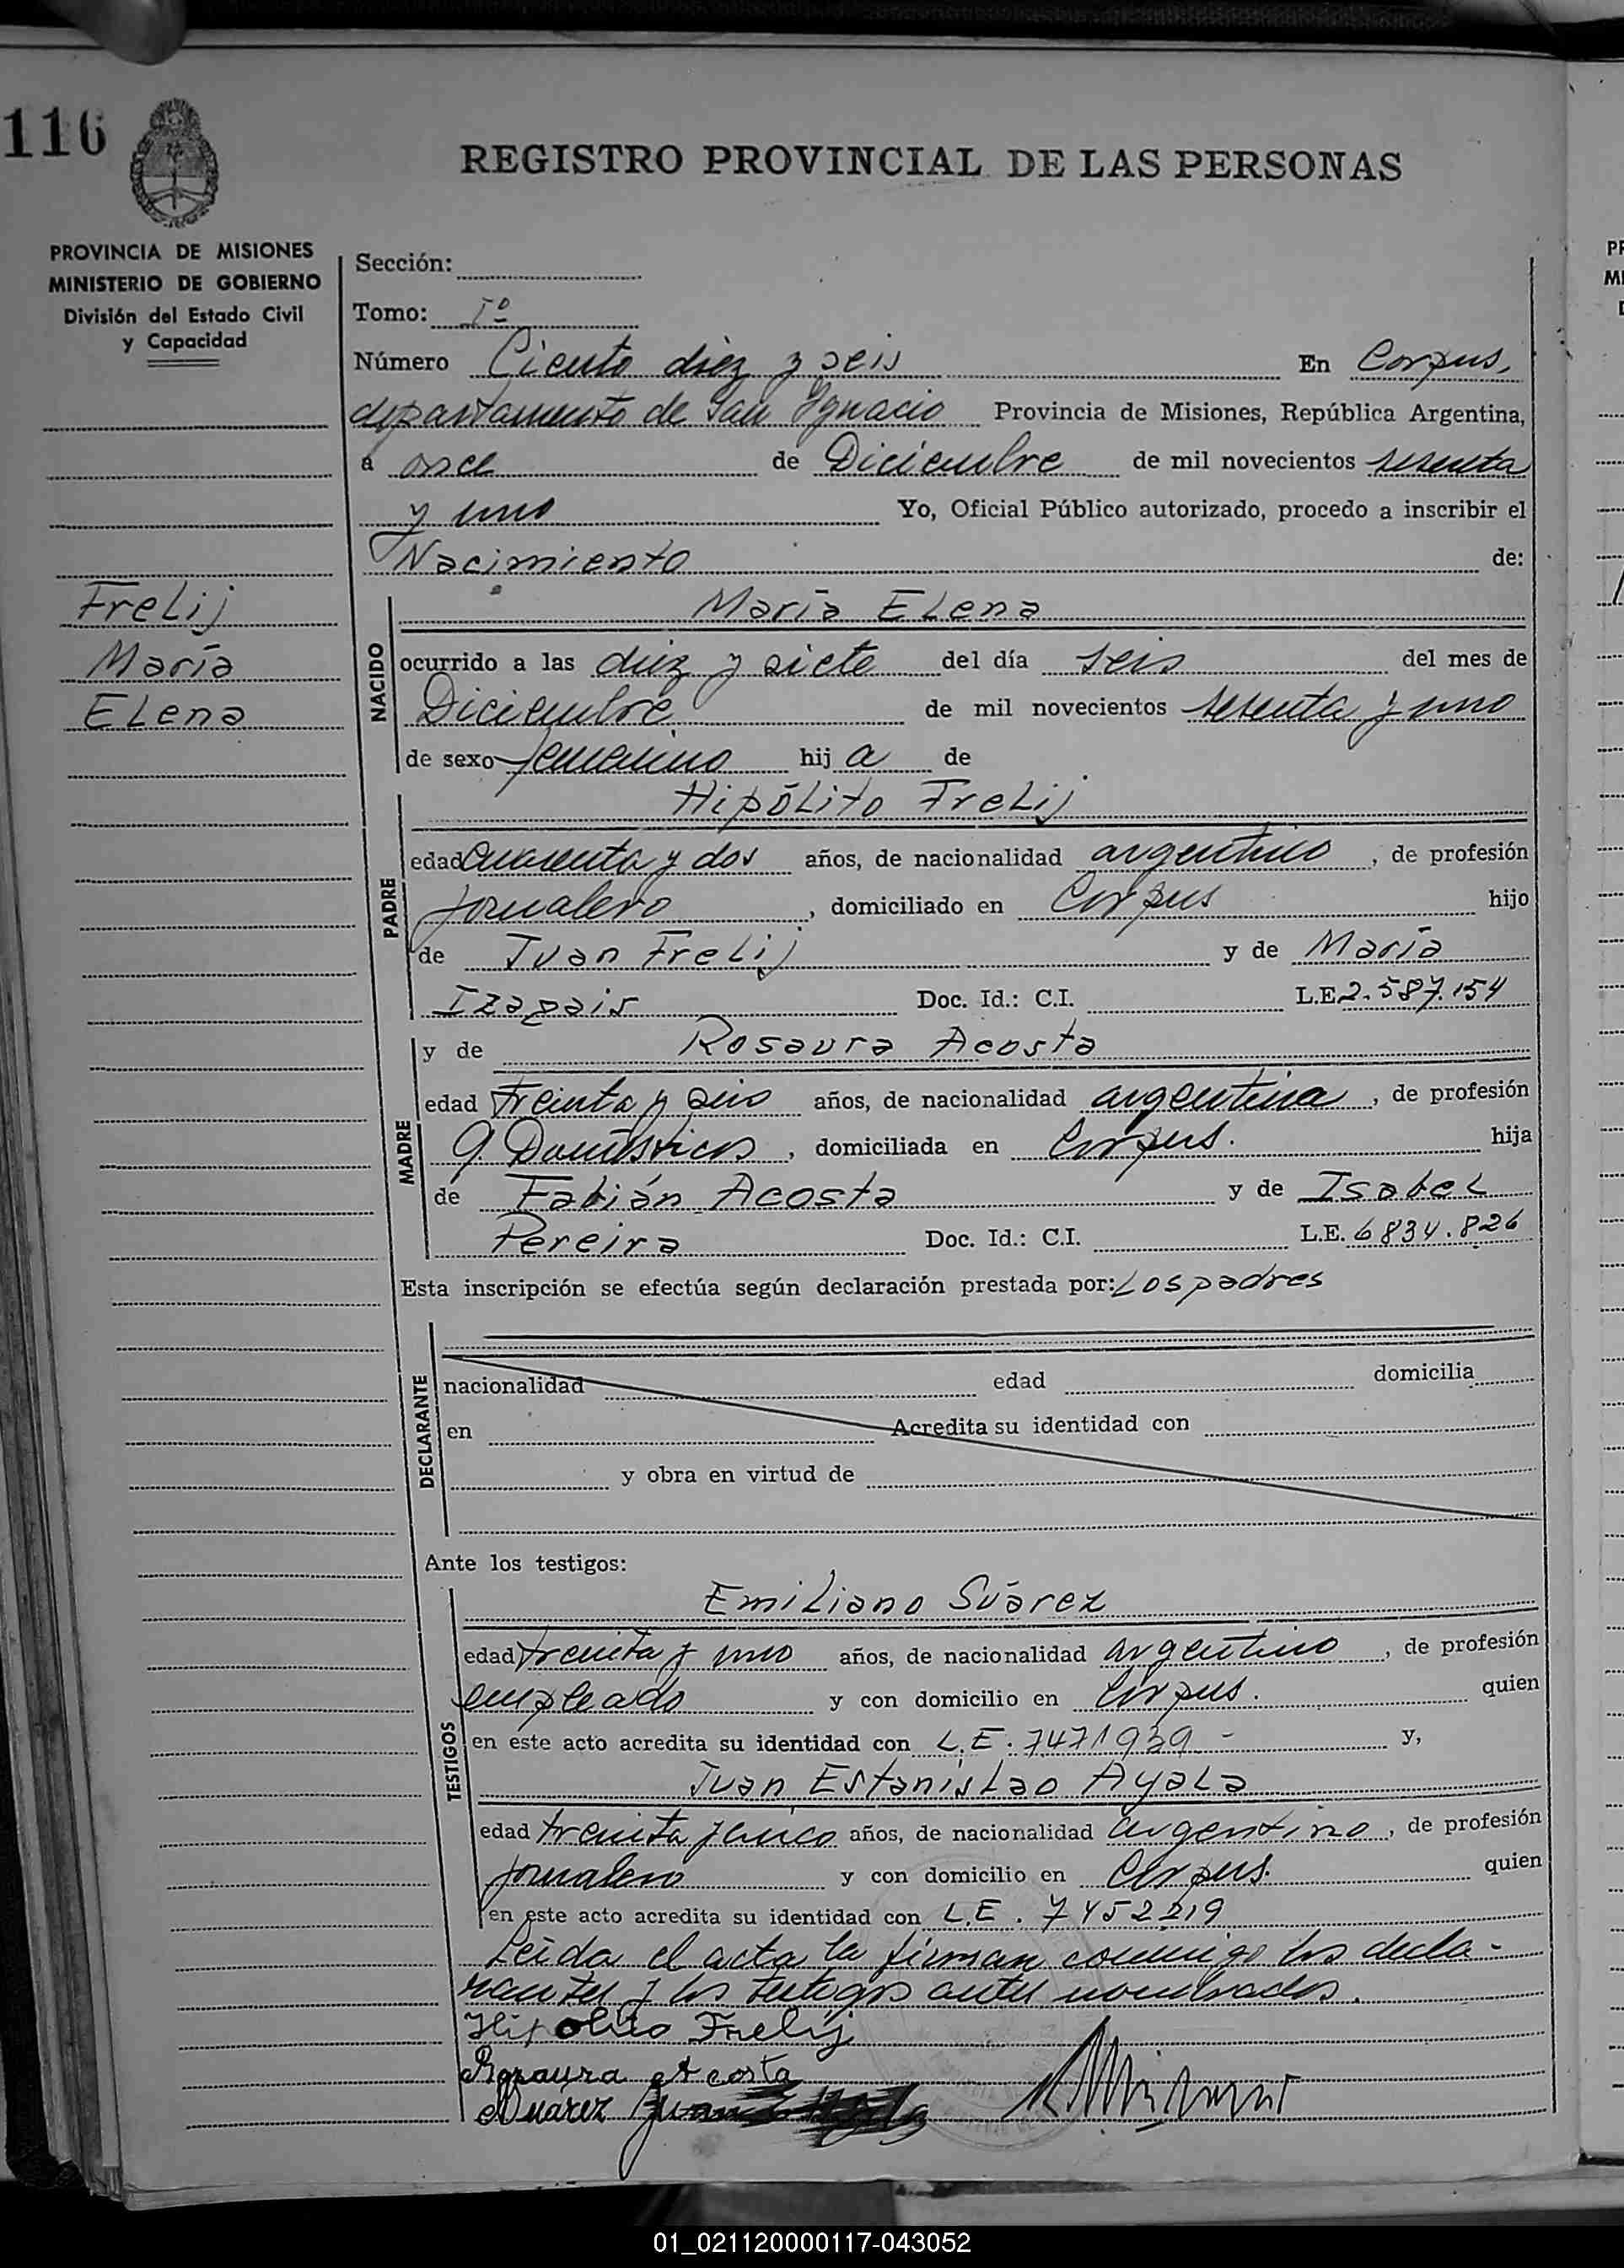 116
REGISTRO PROVINCIAL DE LAS PERSONAS
PROVINCIA DE MISIONES
MINISTERIO DE GOBIERNO
División del Estado Civil
y Capacidad
Frelij
María
Elena
Sección:
Tomo: Iº
Número Ciento diez y seis En Corpus,
departamento de San Ygnacio Provincia de Misiones, República Argentina,
a once de Diciembre de mil novecientos sesenta
y uno Yo, Oficial Público autorizado, procedo a inscribir el
Nacimiento de:
NACIDO
María Elena
ocurrido a las diez y siete del día seis del mes de
Diciembre de mil novecientos sesenta y uno
de sexo femenino hij a de
PADRE
Hipólito Frelij
edad cuarenta y dos años, de nacionalidad argentino, de profesión
jornalero, domiciliado en Corpus hijo
de Juan Frelij y de María
Doc. Id.: C.I. L.E 2.587.154
MADRE
y de Rosaura Acosta
edad treinta y años, de nacionalidad argentina, de profesión
q. Domésticos, domiciliada en Corpus. hija
de Fabián Acosta y de Isabel
Pereira Doc. Id.: C.I. L.E. 6834.826
Esta inscripción se efectúa según declaración prestada por: Los padres
DECLARANTE
nacionalidad edad domicilia
en Acredita su identidad con
y obra en virtud de
Ante los testigos:
TESTIGOS
Emiliano Suárez
edad treinta y uno años, de nacionalidad argentino, de profesión
empleado y con domicilio en Corpus. quien
en este acto acredita su identidad con L.E. 7471939 - y,
Juan Estanislao Ayala
edad treinta y cinco años, de nacionalidad argentino, de profesión
jornalero y con domicilio en Corpus. quien
en este acto acredita su identidad con L.E. 7452219
Leída el acta la firman conmigo los decla-
rantes y los testigos antes nombrados.
Hipolito Frelij
Rosaura Acosta
Suárez Juan
01_021120000117-043052